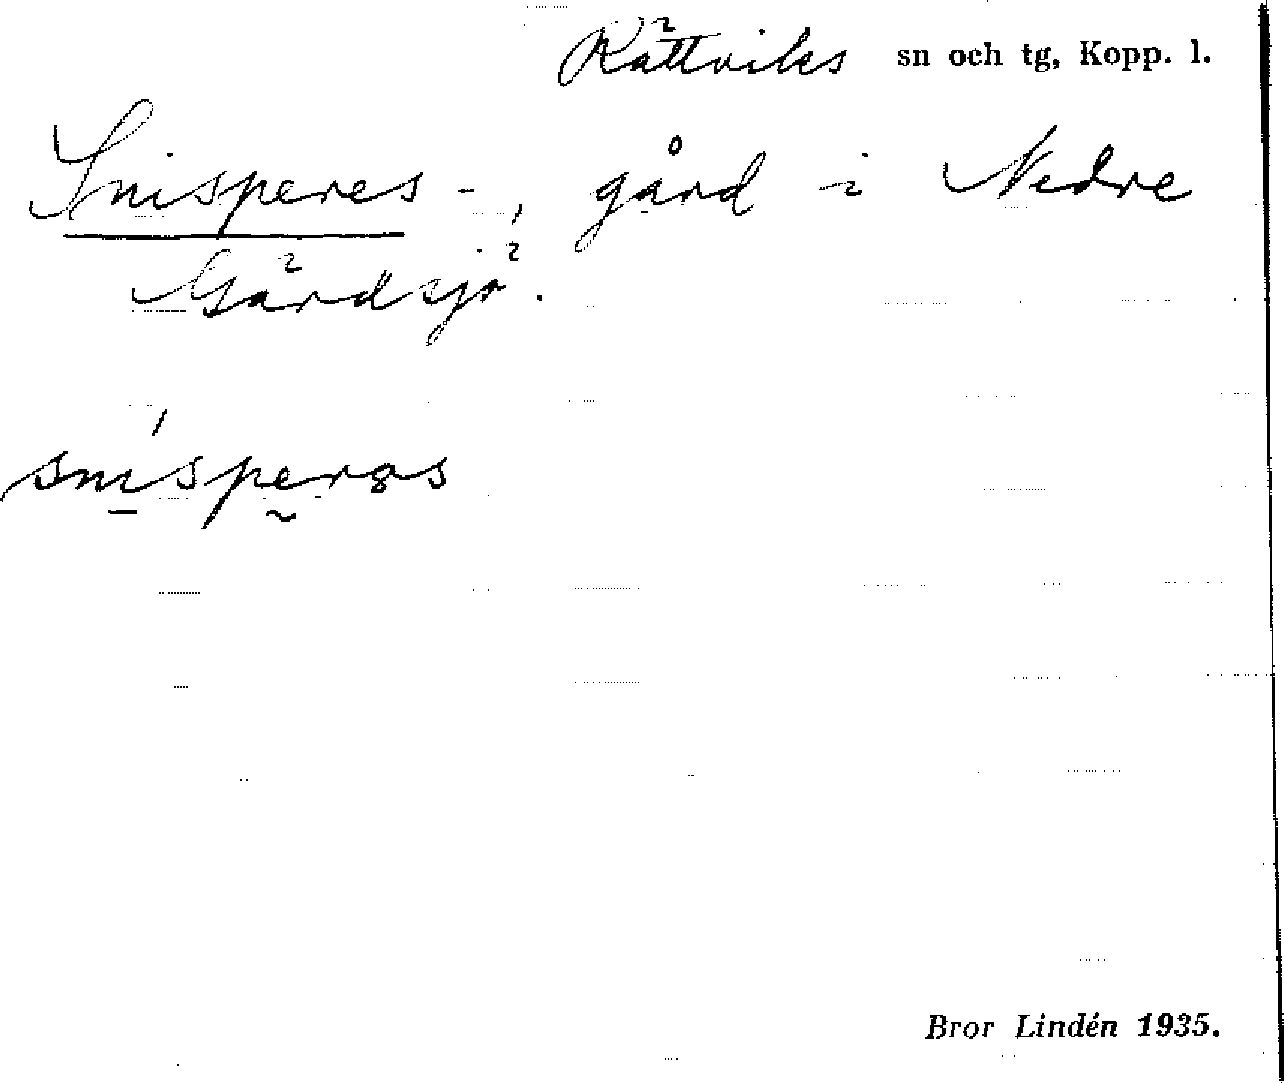 Rättviks sn och tg, Kopp. l.
Snisperes -, gård i Nedre
Gärdsjö.
snisperəs
Bror Lindén 1935.